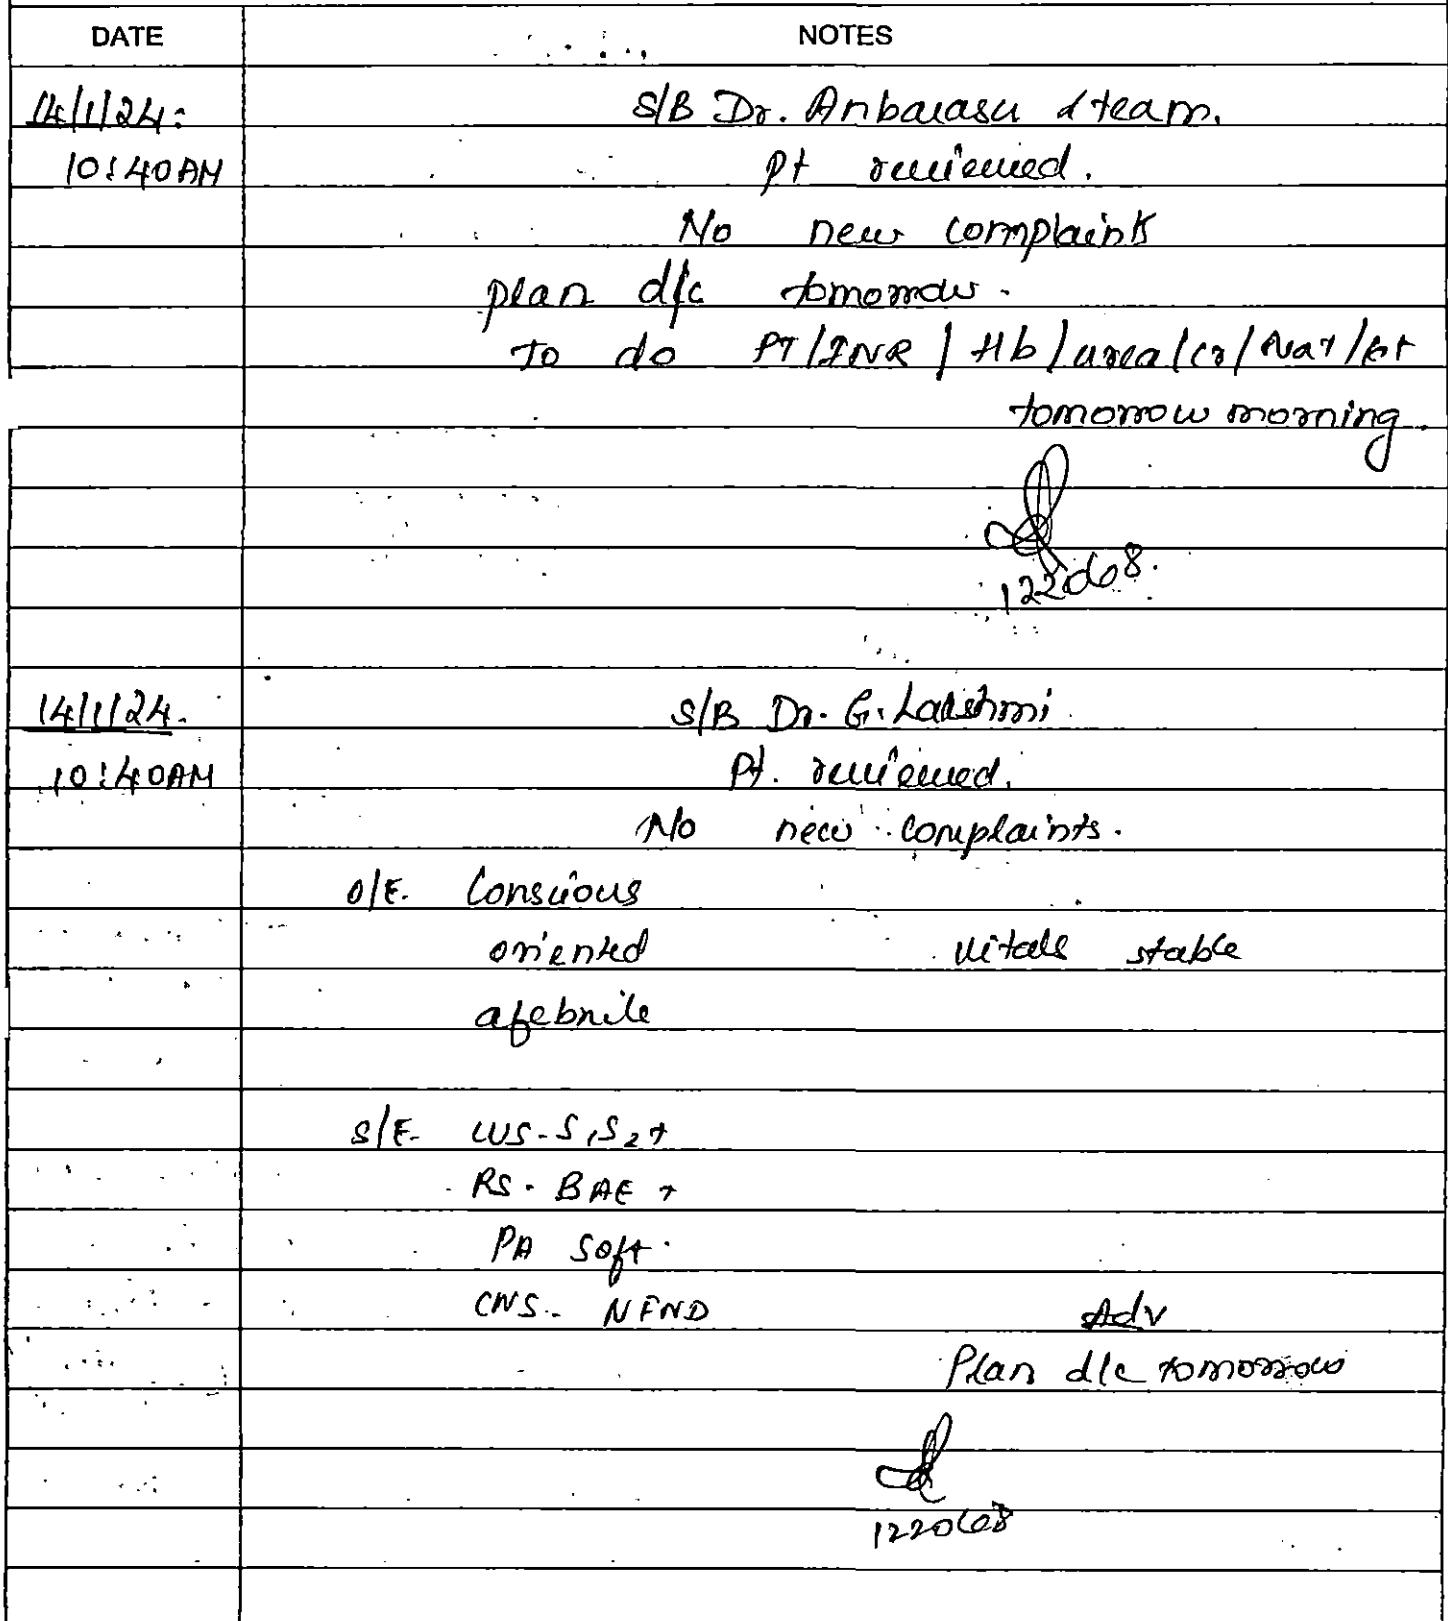 DATE NOTES
14/1/24: S/B Dr. Anbarasu & team.
10:40AM Pt reviewed.
No new complaints
plan d/c tomorrow.
To do PT/INR / Hb / urea / Cr / Na+ / K+
tomorrow morning.
122068.
14/1/24. S/B Dr. G. Lakshmi
10:40AM Pt. reviewed.
No new complaints.
O/E. Conscious
oriented vitals stable
afebrile
S/E. CVS - S1S2+
RS - BAE +
PA soft.
CNS - NFND Adv
Plan d/c tomorrow
122068